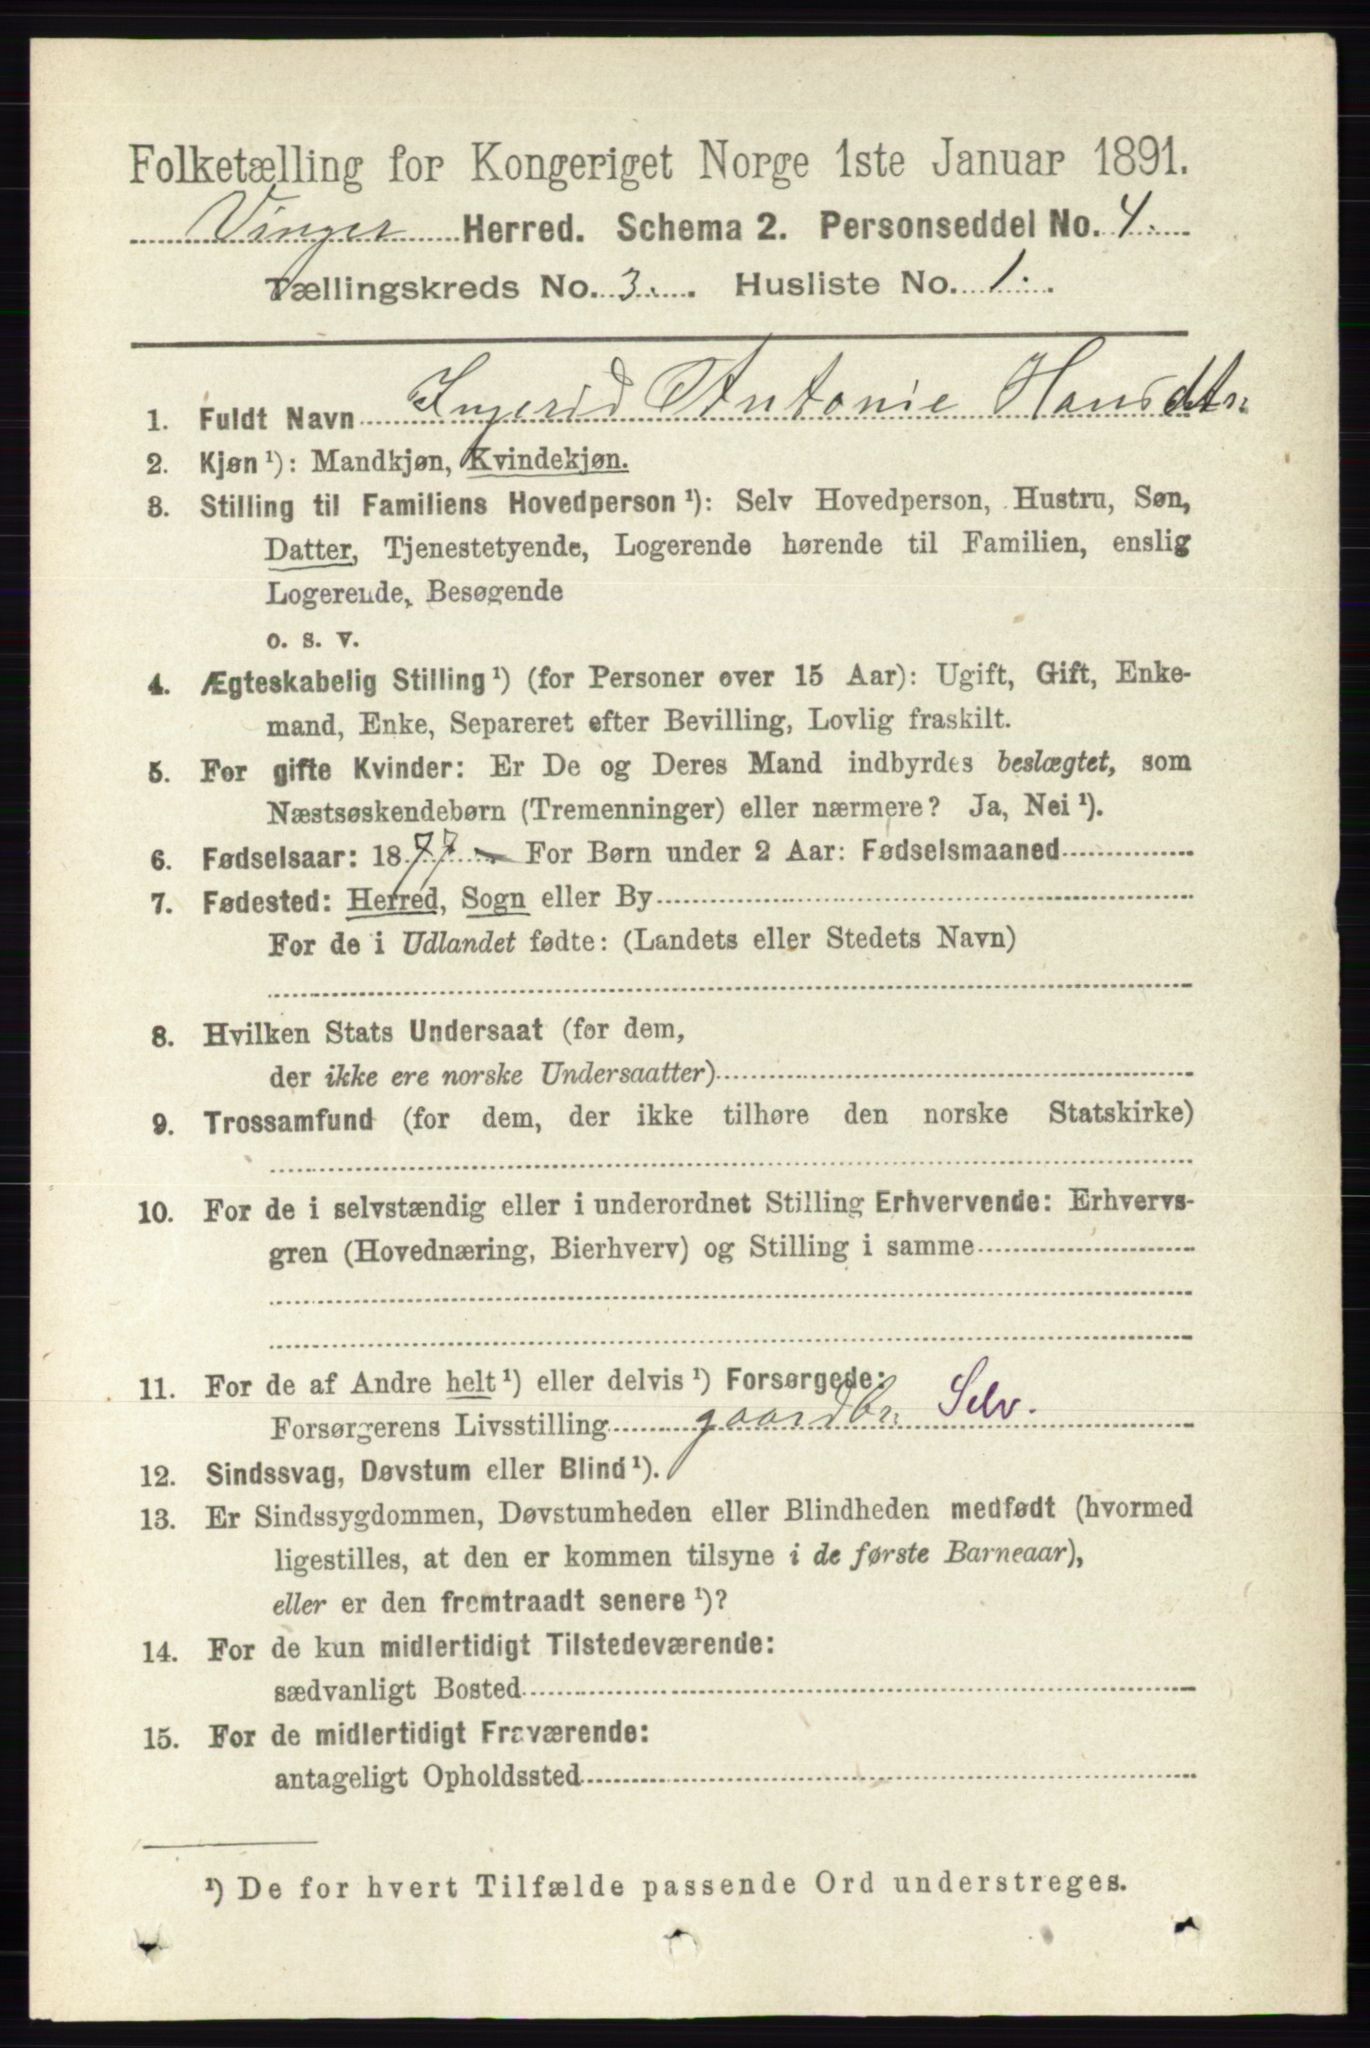 Folketælling for Kongeriget Norge 1ste Januar 1891.
Vinger Herred. Schema 2. Personseddel No. 4.
Tællingskreds No. 3. Husliste No. 1.
1. Fuldt Navn Ingerid Antonie Hansdtr.
2. Kjøn ¹): Mandkjøn, Kvindekjøn.
3. Stilling til Familiens Hovedperson ¹): Selv Hovedperson, Hustru, Søn,
Datter, Tjenestetyende, Logerende hørende til Familien, enslig
Logerende, Besøgende
o. s. v.
4. Ægteskabelig Stilling ¹) (for Personer over 15 Aar): Ugift, Gift, Enke-
mand, Enke, Separeret efter Bevilling, Lovlig fraskilt.
5. For gifte Kvinder: Er De og Deres Mand indbyrdes beslægtet, som
Næstsøskendebørn (Tremenninger) eller nærmere? Ja, Nei ¹).
6. Fødselsaar: 1877 For Børn under 2 Aar: Fødselsmaaned
7. Fødested: Herred, Sogn eller By
For de i Udlandet fødte: (Landets eller Stedets Navn)
8. Hvilken Stats Undersaat (for dem,
der ikke ere norske Undersaatter)
9. Trossamfund (for dem, der ikke tilhøre den norske Statskirke)
10. For de i selvstændig eller i underordnet Stilling Erhvervende: Erhvervs-
gren (Hovednæring, Bierhverv) og Stilling i samme
11. For de af Andre helt ¹) eller delvis ¹) Forsørgede:
Forsørgerens Livsstilling gaardbr. Selv.
12. Sindssvag, Døvstum eller Blind ¹).
13. Er Sindssygdommen, Døvstumheden eller Blindheden medfødt (hvormed
ligestilles, at den er kommen tilsyne i de første Barneaar),
eller er den fremtraadt senere ¹)?
14. For de kun midlertidigt Tilstedeværende:
sædvanligt Bosted
15. For de midlertidigt Fraværende:
antageligt Opholdssted
¹) De for hvert Tilfælde passende Ord understreges.